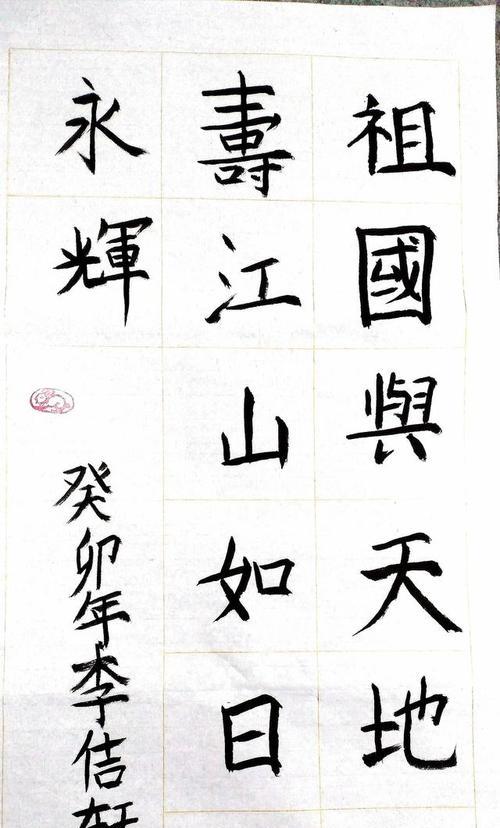 祖國與天地
壽江山如日
永輝
癸卯年李佶轩